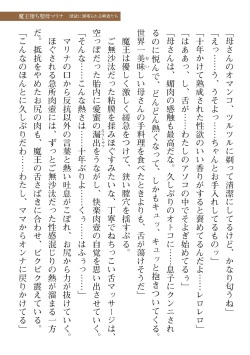 魔王堕ち聖母マリナ
母さんのオマンコ、ツルツルに剃って清潔にしてるけど、かなり匂うね」
えっ……う、うそよっ……ちゃんとお手入れしてるもの……ッ」
「十年かけて熟成された性欲のいい香りがするって褒めてるんだよ……レロレロ」
はぁあっ、し、舌が……わたしのアソコの中でそよぎ始めてるぅ……」
「母さんは、媚肉の感触も最高だな。久しぶりのオトコに……息子にクンニされ
るのに悦んで、こんなに熱くなって、しかもキュッ、キュッと抱きついてくる。
世界一美味しい母さんの手料理を食べたときよりも、舌が蕩けそうだ」
魔王は優しく激しく緩急をつけて、狭い膣穴を揉すぶる。
ご無沙汰だった粘膜を揉みほぐすみたいな、丁寧でねちっこい舌マッサージは、
空っぽだった胎内に愛情を充填しながら、快楽肉壺の自覚を思い出させていく。
「そんな……こんな熱さは……十年ぶりなんだからぁ……くっ……はふぅっ……」
マリナの口から反抗以外の熱く甘い吐息がこぼれ、お尻から力が抜けていく。
ほぐされる急所肉壺には、ずっとご無沙汰だった性感混じりの熱が溜まる一方
だ。抵抗をやめたお尻の肉も、魔王の舌さばきに合わせ、ビクビク震えている。
「こんなのほんとに久しぶりだわ……わたし、ママからオンナに戻りかけてる」